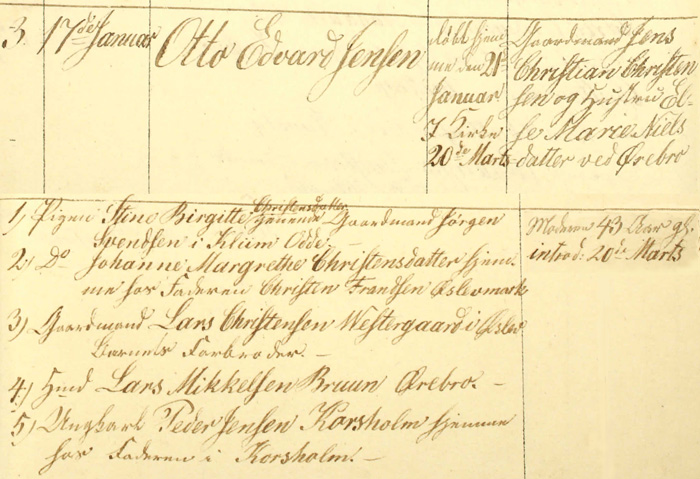 3. 17de Januar
Otto Edvard Jensen
døbt hjem-
me den 21
Januar
I Kirke
20de Marts
Gaardmand Jens
Christian Christen
sen og Hustru El-
se Marie Niels
datter ved Ørebro
1) Pigen Stine Birgitte Christensdatter hjemme Gaardmand Jørgen
Svendsen i Klim Odde. –
2) Do Johanne Margrethe Christensdatter hjem-
me hos Faderen Christen Frandsen Øslevmark
3) Gaardmand Lars Christensen Westergaard i Øslev
Barnets Farbroder. –
4) Hmd Lars Mikkelsen Bruun Ørebro. –
5) Ungkarl Peder Jensen Korsholm hjemme
hos Faderen i Korsholm. –
Moderen 43 Aar gl.
introd: 20de Marts